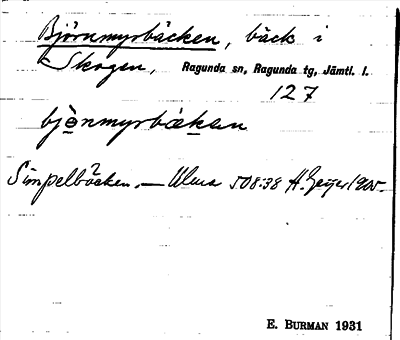 Björnmyrbäcken, bäck i
Skogen, Ragunda sn, Ragunda tg, Jämtl. l.
127
bjö̀nmyrbäkan
Simpelbäcken. — Ulma 508:38 A. Geijer 1905.
E. BURMAN 1931